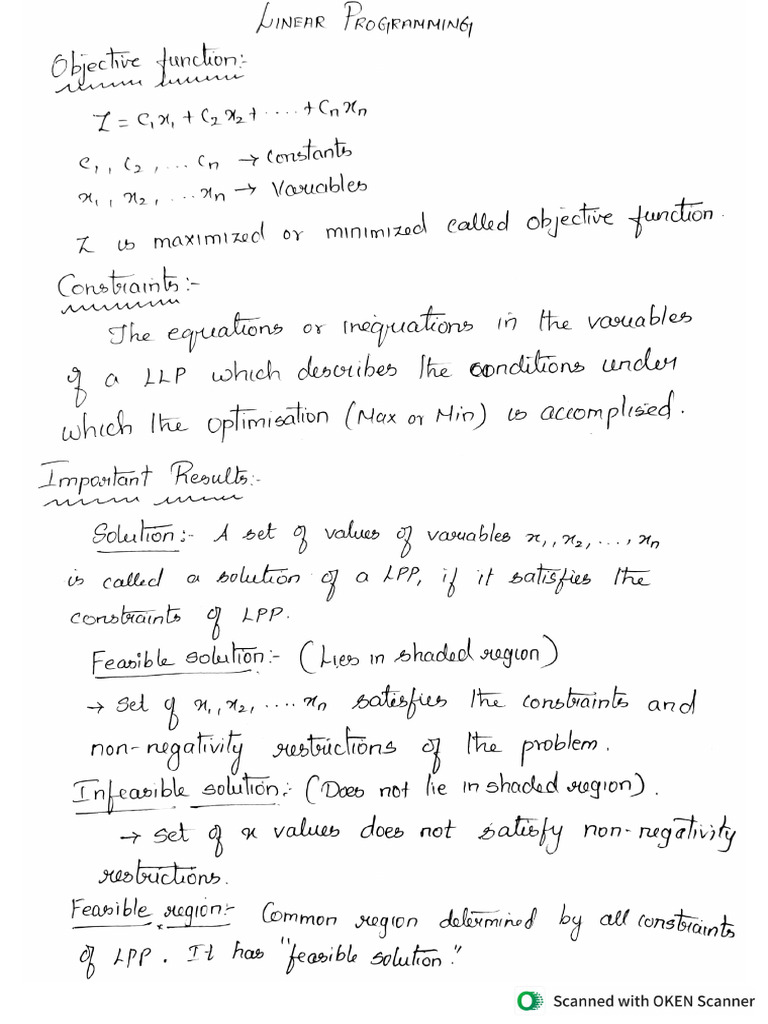 LINEAR PROGRAMMING
Objective function:-
Z = C₁x₁ + C₂x₂ + ..... + Cₙxₙ
C₁, C₂, ... Cₙ → Constants
x₁, x₂, ... xₙ → Variables
Z is maximized or minimized called objective function.
Constraints:-
The equations or inequations in the variables
of a LLP which describes the conditions under
which the optimisation (Max or Min) is accomplised.
Important Results:-
Solution:- A set of values of variables x₁, x₂, ..., xₙ
is called a solution of a LPP, if it satisfies the
constraints of LPP.
Feasible solution:- (Lies in shaded region)
→ set of x₁, x₂, .... xₙ satisfies the constraints and
non-negativity restrictions of the problem.
Infeasible solution:- (Does not lie in shaded region).
→ set of x values does not satisfy non-negativity
restrictions.
Feasible region:- Common region determined by all constraints
of LPP. It has "feasible solution."
Scanned with OKEN Scanner